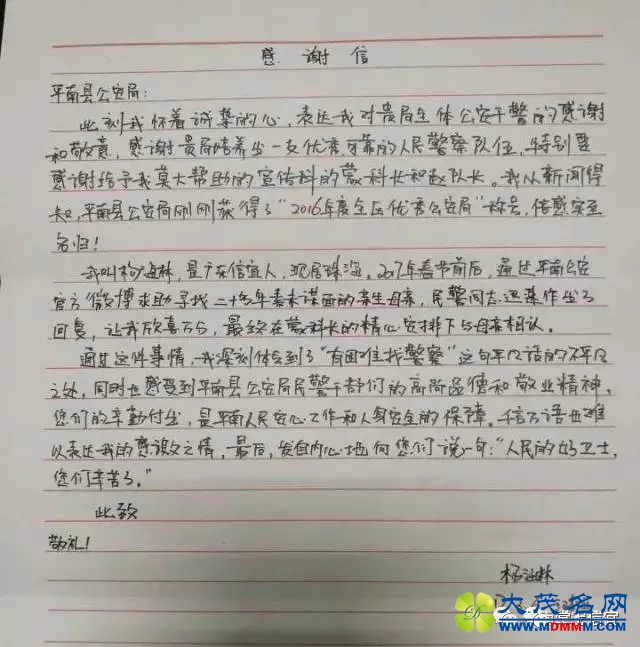 感谢信
平南县公安局：
此刻我怀着诚挚的心，表达我对贵局全体公安干警的感谢
和敬意，感谢贵局培养出一支优秀可靠的人民警察队伍，特别要
感谢给予我莫大帮助的宣传科的蒙科长和赵队长。我从新闻得
知，平南县公安局刚刚获得了“2016年度全区优秀公安局”称号，倍感实至
名归！
我叫杨海林，是广东信宜人，现居珠海。2017年春节前后，通过平南公安
官方微博求助寻找二十多年素未谋面的亲生母亲，民警同志迅速作出了
回复，让我欣喜万分，最终在蒙科长的精心安排下与母亲相认。
通过这件事情，我深刻体会到了“有困难找警察”这句平凡话的不平凡
之处，同时也感受到平南县公安局民警干部们的高尚品德和敬业精神，
您们的辛勤付出，是平南人民安心工作和人身安全的保障。千言万语也难
以表达我的感激之情，最后，发自内心地向您们说一句：“人民的好卫士，
您们辛苦了。”
此致
敬礼！
杨海林
大茂名网
WWW.MDMMM.COM